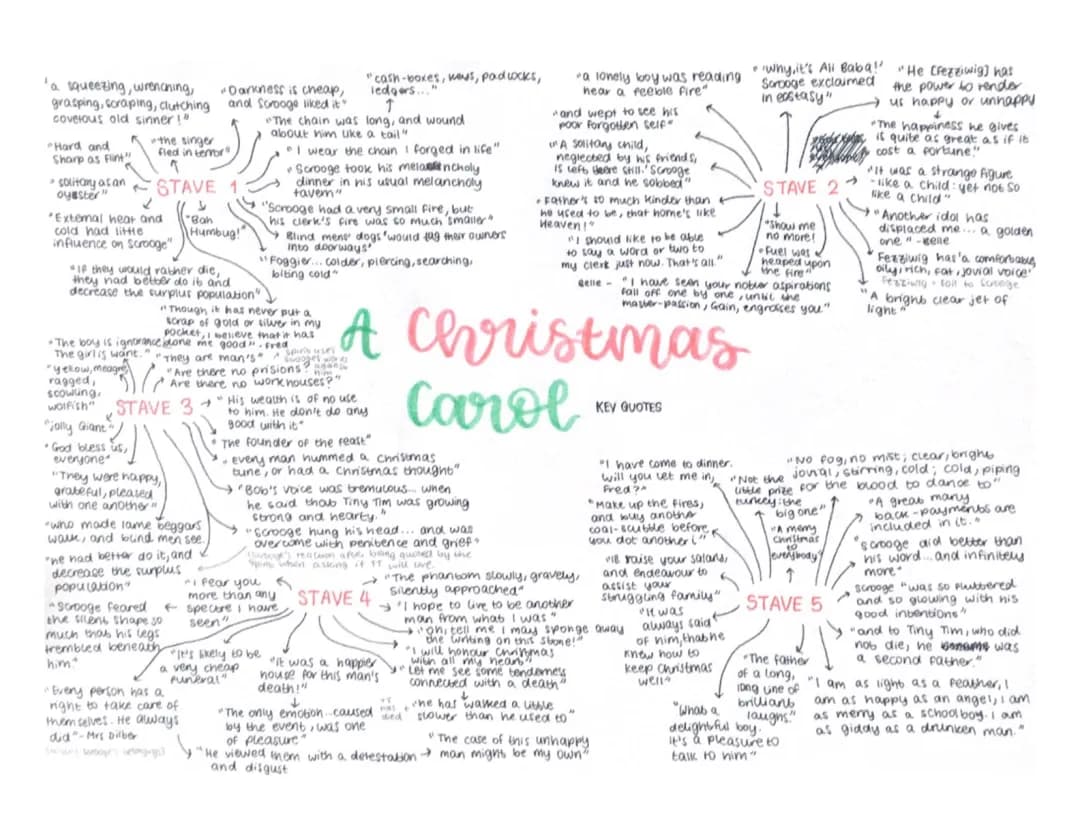 "a squeezing, wrenching,
grasping, scraping, clutching
covetous old sinner!"
"Darkness is cheap,
and Scrooge liked it"
"cash-boxes, keys, padlocks,
ledgers..."
"The chain was long, and wound
about him like a tail"
"Hard and
sharp as flint"
"the singer
fled in terror"
"I wear the chain I forged in life"
"Scrooge took his melancholy
dinner in his usual melancholy
tavern"
"solitary as an
oyster"
STAVE 1
"Scrooge had a very small fire, but
his clerk's fire was so much smaller"
"External heat and
cold had little
influence on Scrooge"
"Bah
Humbug!"
Blind mens' dogs 'would tug their owners
into doorways'
"Foggier... colder, piercing, searching,
biting cold"
"If they would rather die,
they had better do it and
decrease the surplus population"
"a lonely boy was reading
near a feeble fire"
"Why, it's Ali Baba!'
Scrooge exclaimed
in ecstasy"
"He [Fezziwig] has
the power to render
us happy or unhappy
"The happiness he gives
is quite as great as if it
cost a fortune."
"and wept to see his
poor forgotten self"
"A solitary child,
neglected by his friends,
is left there still.' Scrooge
knew it and he sobbed"
"Father's so much kinder than
he used to be, that home's like
Heaven!"
STAVE 2
"It was a strange figure
-like a child: yet not so
like a child"
"Another idol has
displaced me... a golden
one." -Belle
"Show me
no more!
"Fuel was
heaped upon
the fire"
"I should like to be able
to say a word or two to
my clerk just now. That's all."
Fezziwig has 'a comfortable,
oily, rich, fat, jovial voice'
Fezziwig = foil to Scrooge
Belle - "I have seen your nobler aspirations
fall off one by one, until the
master-passion, Gain, engrosses you"
"A bright clear jet of
light"
A Christmas
Carol
KEY QUOTES
"Though it has never put a
scrap of gold or silver in my
pocket, I believe that it has
done me good" - Fred
"The boy is ignorance
The girl is want."
"They are man's"
spirit uses
scrooges words
against
him
"Are there no prisions?
Are there no workhouses?"
"Yellow, meagre,
ragged,
scowling,
wolfish"
STAVE 3
"His wealth is of no use
to him. He don't do any
good with it"
"jolly Giant"
"The founder of the feast"
"God bless us,
everyone"
"every man hummed a Christmas
tune, or had a Christmas thought"
"They were happy,
grateful, pleased
with one another"
"Bob's voice was tremulous... when
he said that Tiny Tim was growing
strong and hearty."
"who made lame beggars
walk, and blind men see.
"Scrooge hung his head... and was
overcome with penitence and grief"
"he had better do it, and
decrease the surplus
population"
"I fear you
more than any
spectre I have
seen"
STAVE 4
"The phantom slowly, gravely,
silently approached"
"I hope to live to be another
man from what I was"
"Scrooge feared
the silent shape so
much that his legs
trembled beneath
him."
"Oh, tell me I may sponge away
the writing on this stone!"
"I will honour Christmas
with all my heart"
"Let me see some tenderness
connected with a death"
"It's likely to be
a very cheap
funeral"
"It was a happier
house for this man's
death!"
"Every person has a
right to take care of
themselves. He always
did"- Mrs Dilber
"The only emotion...caused
by the event, was one
of pleasure"
TT
has
died
"he has walked a little
slower than he used to"
"He viewed them with a detestation
and disgust
"The case of this unhappy
man might be my own"
"I have come to dinner.
Will you let me in,
Fred?"
"Not the
little prize
turkey: the
big one"
"No fog, no mist; clear, bright,
jovial, stirring, cold; cold, piping
for the blood to dance to"
"Make up the fires,
and buy another
coal-scuttle before
you dot another i,"
"A merry
Christmas
to
everybody!
"A great many
back-payments are
included in it."
"Scrooge did better than
his word...and infinitely
more"
"I'll raise your salary,
and endeavour to
assist your
struggling family"
STAVE 5
Scrooge "was so fluttered
and so glowing with his
good intentions"
"It was
always said
of him, that he
knew how to
keep Christmas
well"
"and to Tiny Tim, who did
not die, he was
a second father."
"The father
of a long,
long line of
brilliant
laughs."
"What a
delightful boy.
It's a pleasure to
talk to him"
"I am as light as a feather, I
am as happy as an angel, I am
as merry as a schoolboy. I am
as giddy as a drunken man."